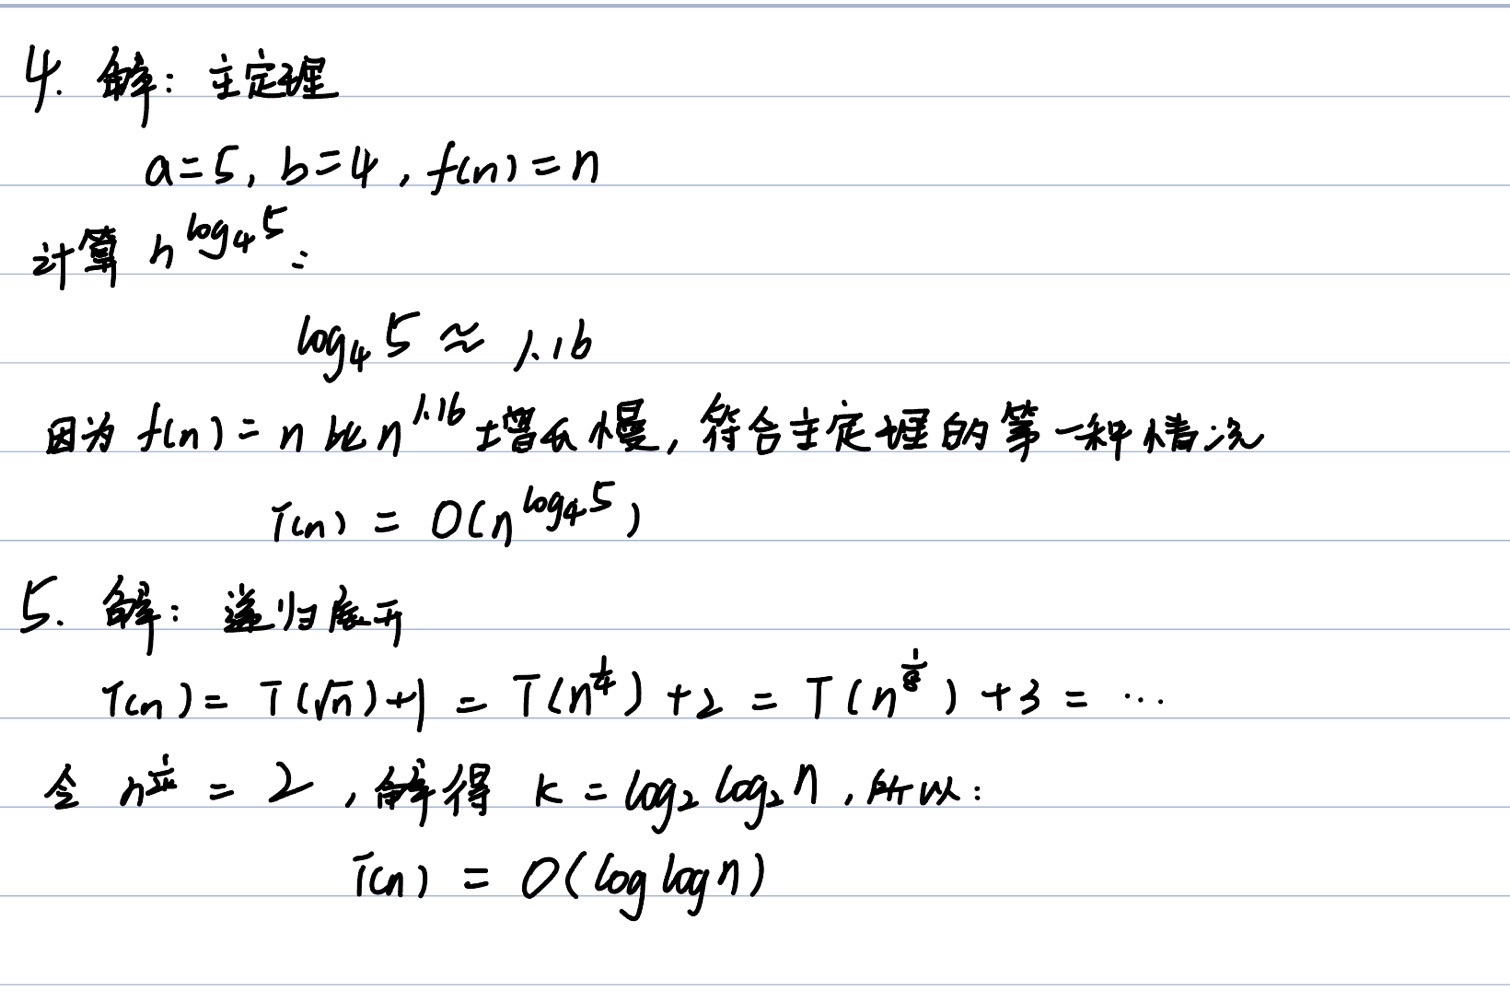 4. 解: 主定理
a=5, b=4, f(n)=n
计算 n^{log_4 5}:
log_4 5 ≈ 1.16
因为 f(n) = n 比 n^{1.16} 增长慢, 符合主定理的第一种情况
T(n) = O(n^{log_4 5})
5. 解: 递归展开
T(n) = T(√n)+1 = T(n^{1/4})+2 = T(n^{1/8})+3 = ...
令 n^{1/2^k} = 2, 解得 k = log_2 log_2 n, 所以:
T(n) = O(log log n)